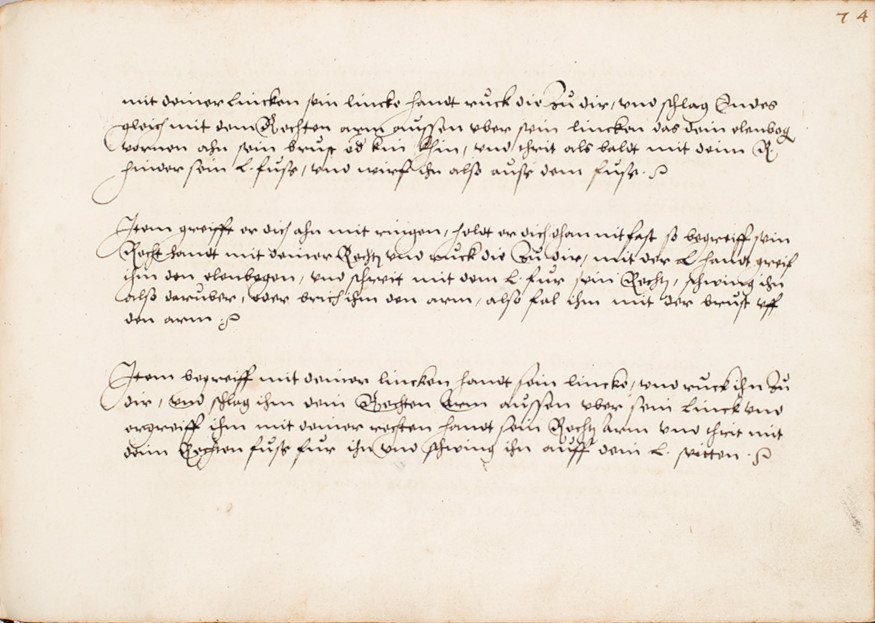 74
mit deiner lincken sein lincke handt ruck die Zu dir, vnd schlag Indes
gleich mit dem Rechten arm aussen vber sein lincken das dein elenbog
vornen ahn sein brust od kin khin, vnd thrit als baldt mit deim R
hinder sein L. fuss, vnd wirf ihn also auss dem fuss.
Item greifft er dich ahn mit ringen, holdt er dich dhan nit fast so begreiff sein
Recht handt mit deiner Rechtn vnd ruck die Zu dir, mit der L handt greif
ihm den elenbogen, vnd schreit mit dem L. fur sein Rechtn, schwing ihn
also daruber, oder brich ihm den arm, also fal ihm mit der brust vff
den arm
Item begreiff mit deiner lincken handt sein lincke, vnd ruck ihn Zu
dir, vnd schlag ihm dein Rechten Arm aussen vber sein Linck vnd
ergreiff ihm mit deiner rechten handt sein Rechtn Arm vnd thrit mit
deim Rechten fuss fur ihn vnd schwing ihn auff dein L. seitten.